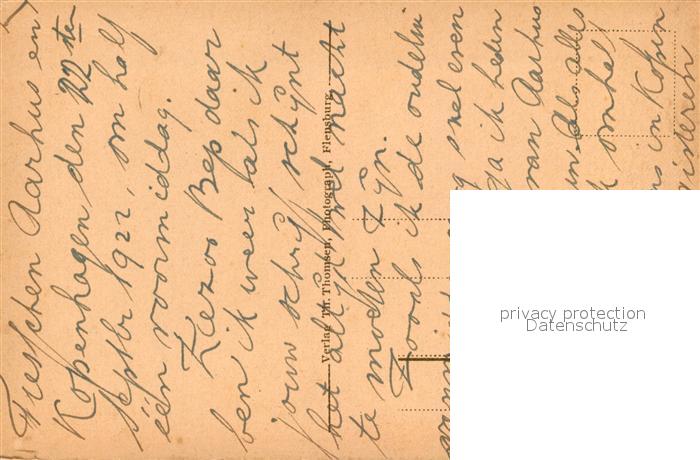 Tusschen Aarhus en
Kopenhagen den 22sten
Septbr 1922, om half
één voormiddag.
Ziezoo Bep daar
ben ik weer als ik
jouw schrijf schijnt
het altijd wel nacht
te moeten zijn.
Zooals ik de oudelui
snel even
ga ik heden
van Aarhus
alles
om half
in Kopen
gisteren
Verlag Th. Thomsen, Photograph, Flensburg
privacy protection
Datenschutz